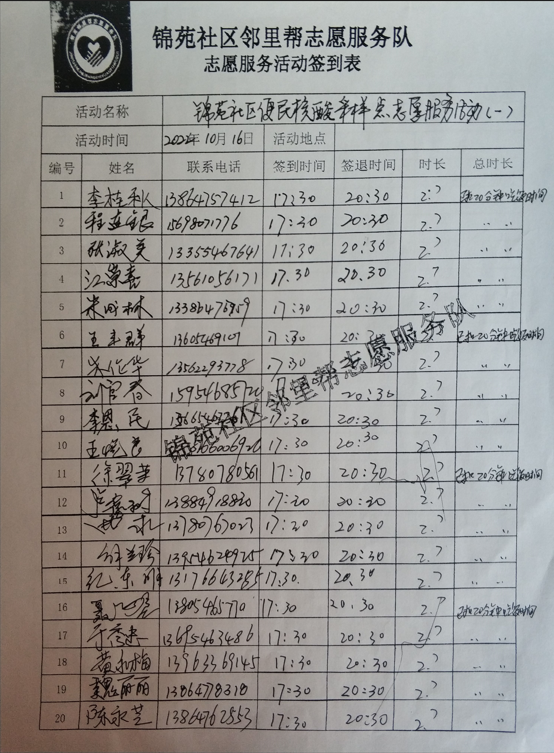 锦苑社区邻里帮志愿服务队
志愿服务活动签到表
活动名称 锦苑社区便民核酸采样点志愿服务活动(一)
活动时间 2022年10月16日 活动地点
编号 姓名 联系电话 签到时间 签退时间 时长 总时长
1 李桂利人 13864757412 17:30 20:30 2.7
2 程连银 15698071776 17:30 20:30 2.7 〃 〃
3 张淑美 13355467641 17:30 20:30 2.7 〃 〃
4 江荣春 13561056171 17:30 20:30 2.7 〃 〃
5 17:30 20:30 2.7 〃 〃
6 13605469107 17:30 20:30 2.7
7 13562293778 17:30 2.7 〃 〃
8 刘官春 20:30 2.7 〃 〃
9 李恩民 17:30 20:30 2.7 〃 〃
10 17:30 20:30 2.7 〃 〃
11 徐翠芳 13780780561 17:30 20:30 2.7
12 13884918830 17:30 20:30 2.7 〃 〃
13 13780763023 17:30 20:30 2.7 〃 〃
14 17:30 20:30 2.7 〃 〃
15 13176643285 17:30 20:30 2.7 〃 〃
16 13805465770 17:30 20:30 2.7
17 13695463486 17:30 20:30 2.7 〃 〃
18 黄和梅 13963369145 17:30 20:30 2.7 〃 〃
19 魏丽丽 13864778318 17:30 20:30 2.7 〃 〃
20 陈永芝 13864762553 17:30 20:30 2.7 〃 〃
锦苑社区邻里帮志愿服务队